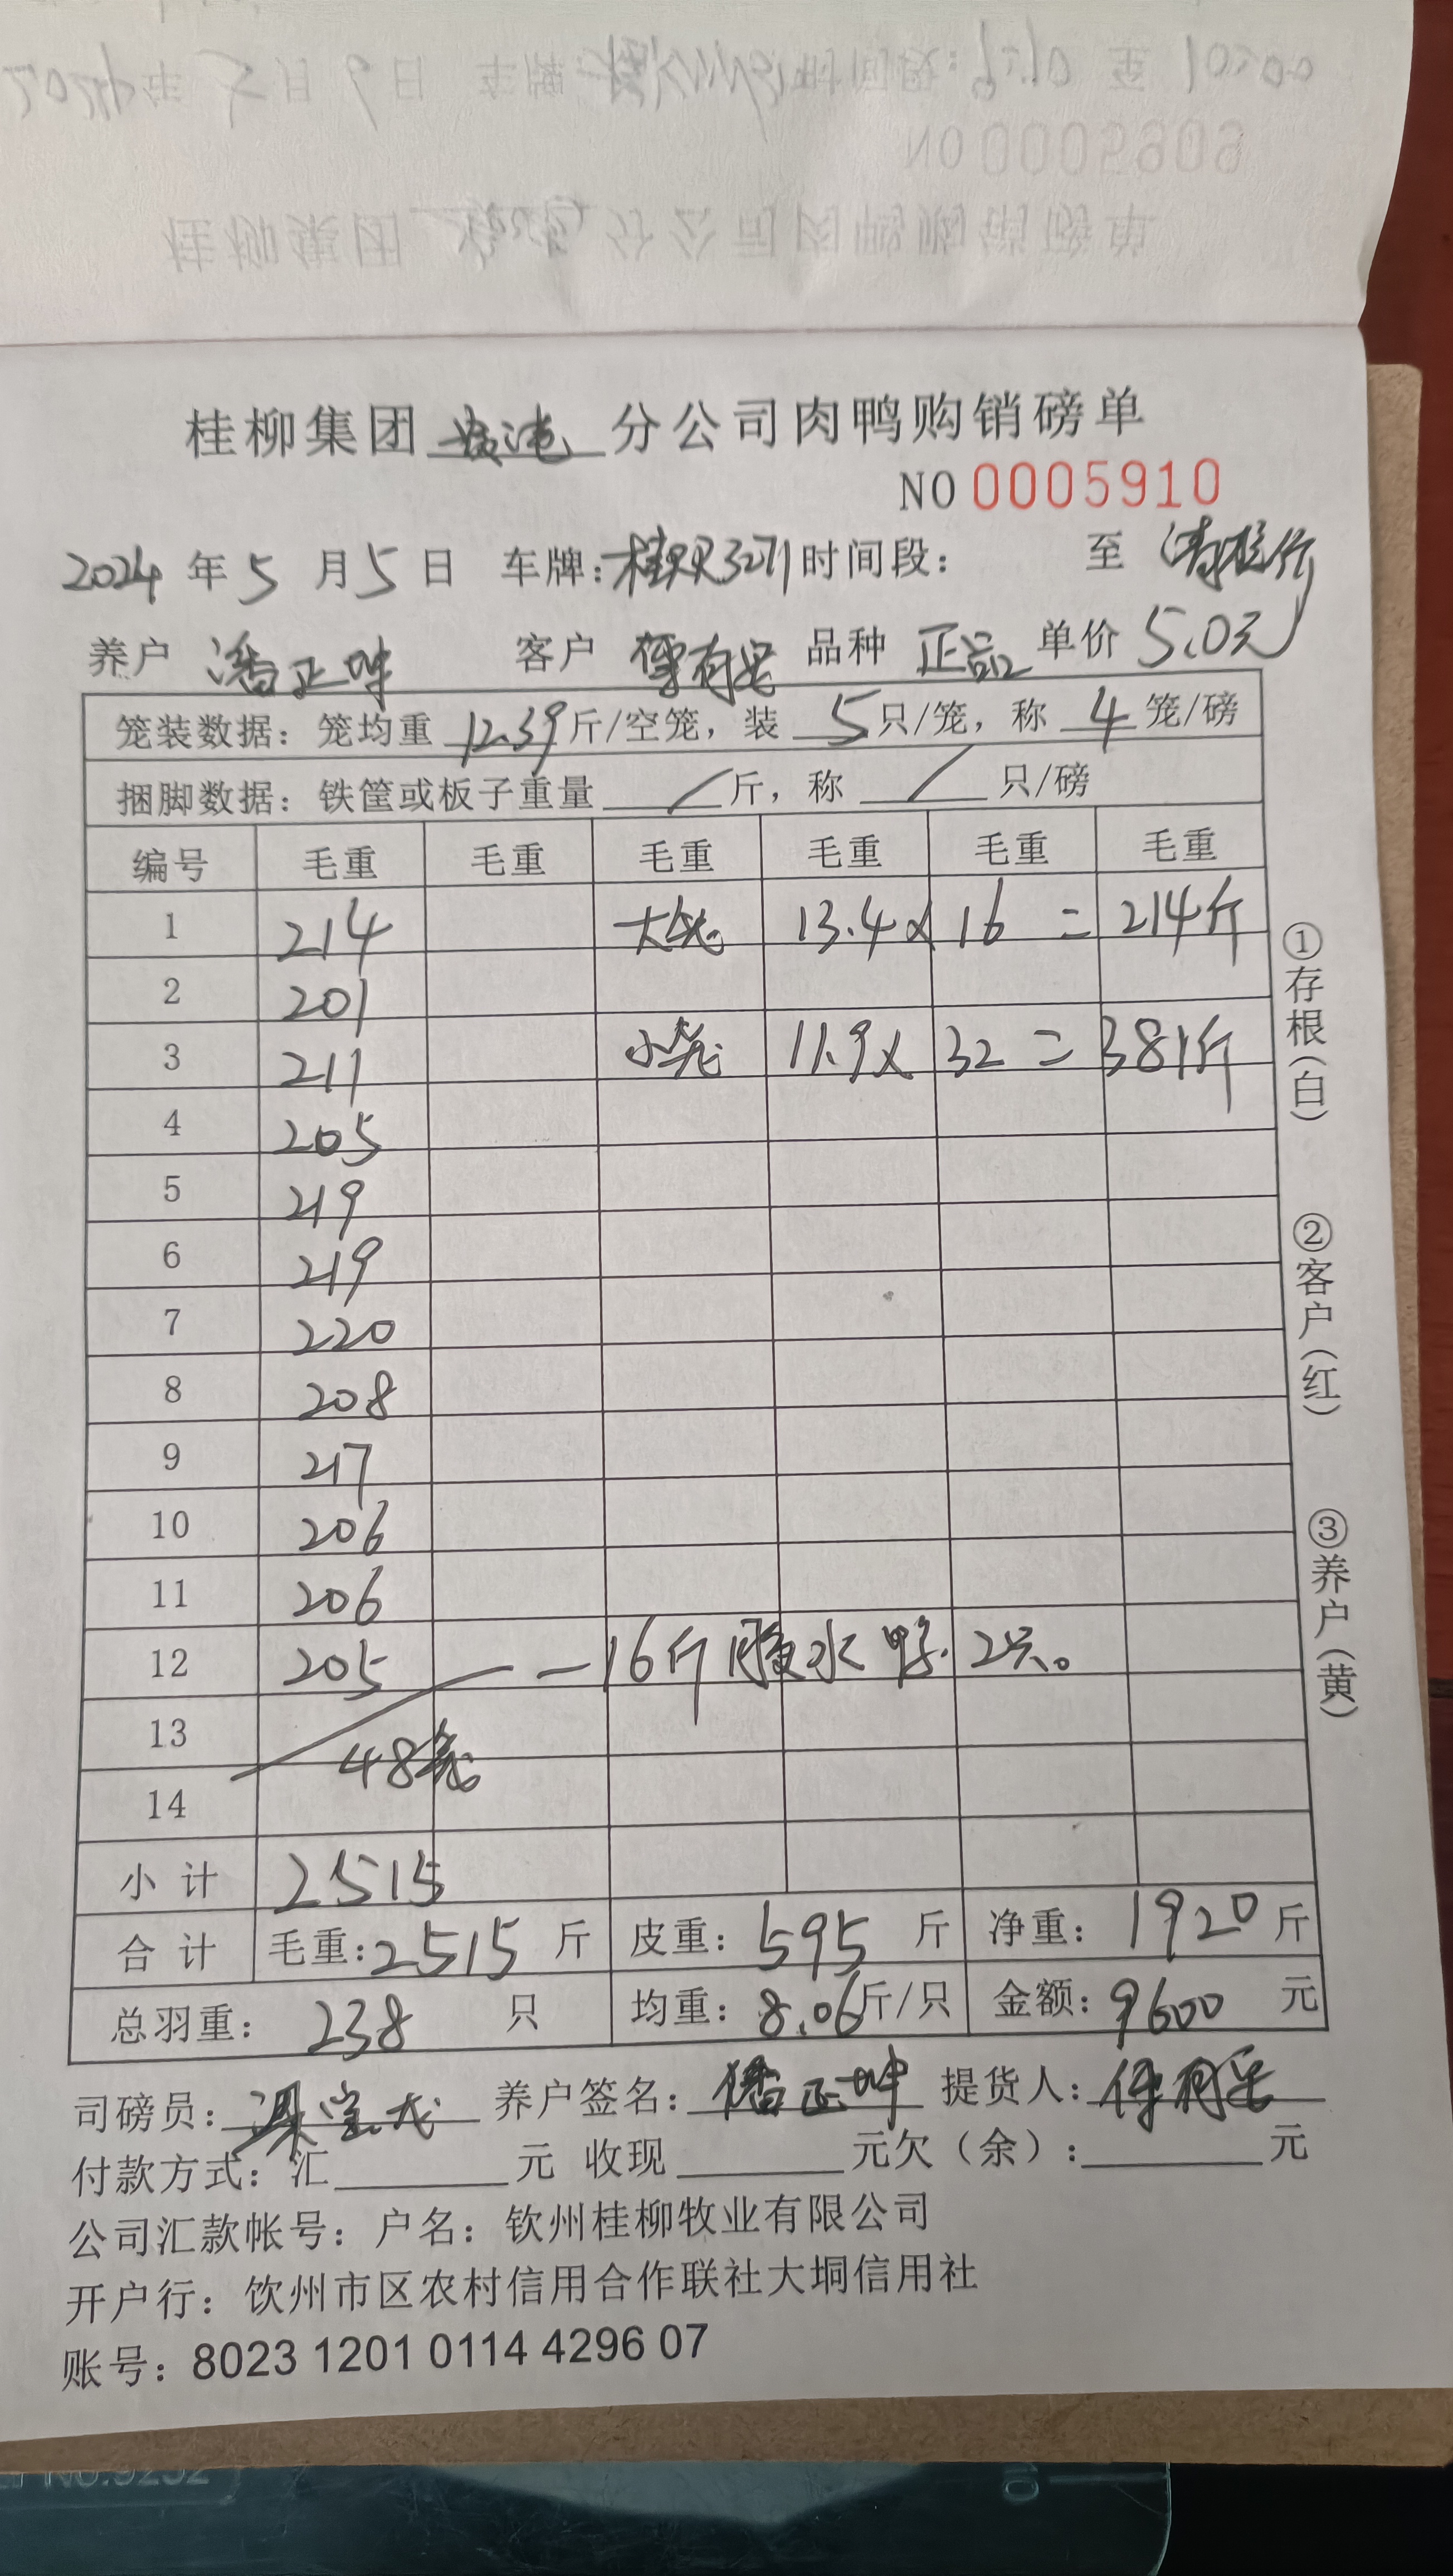 桂柳集团 分公司肉鸭购销磅单
NO 0005910
2024 年 5 月 5 日 车牌: 时间段: 至
养户 潘正坤 客户 品种 正品 单价 5.0元
笼装数据: 笼均重 12.39 斤/空笼, 装 5 只/笼, 称 4 笼/磅
捆脚数据: 铁筐或板子重量 / 斤, 称 / 只/磅
编号 毛重 毛重 毛重 毛重 毛重 毛重
1 214 大笼 13.4 x 16 = 214斤
2 201
3 211 小笼 11.9 x 32 = 381斤
4 205
5 219
6 219
7 220
8 208
9 217
10 206
11 206
12 205 — 16斤腹水鸭 2只。
13 48笼
14
小计 2515
合计 毛重: 2515 斤 皮重: 595 斤 净重: 1920 斤
总羽重: 238 只 均重: 8.06 斤/只 金额: 9600 元
司磅员: 养户签名: 潘正坤 提货人:
付款方式: 汇 元 收现 元欠(余): 元
公司汇款帐号: 户名: 钦州桂柳牧业有限公司
开户行: 饮州市区农村信用合作联社大垌信用社
账号: 8023 1201 0114 4296 07
①存根(白) ②客户(红) ③养户(黄)